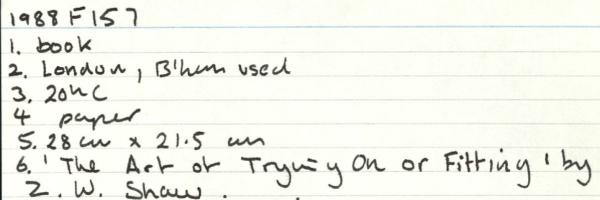 1988 F 157
1. book
2. London, B'ham used
3. 20th C
4 paper
5. 28 cm x 21.5 cm
6. 'The Art of Trying On or Fitting' by
Z. W. Shaw.